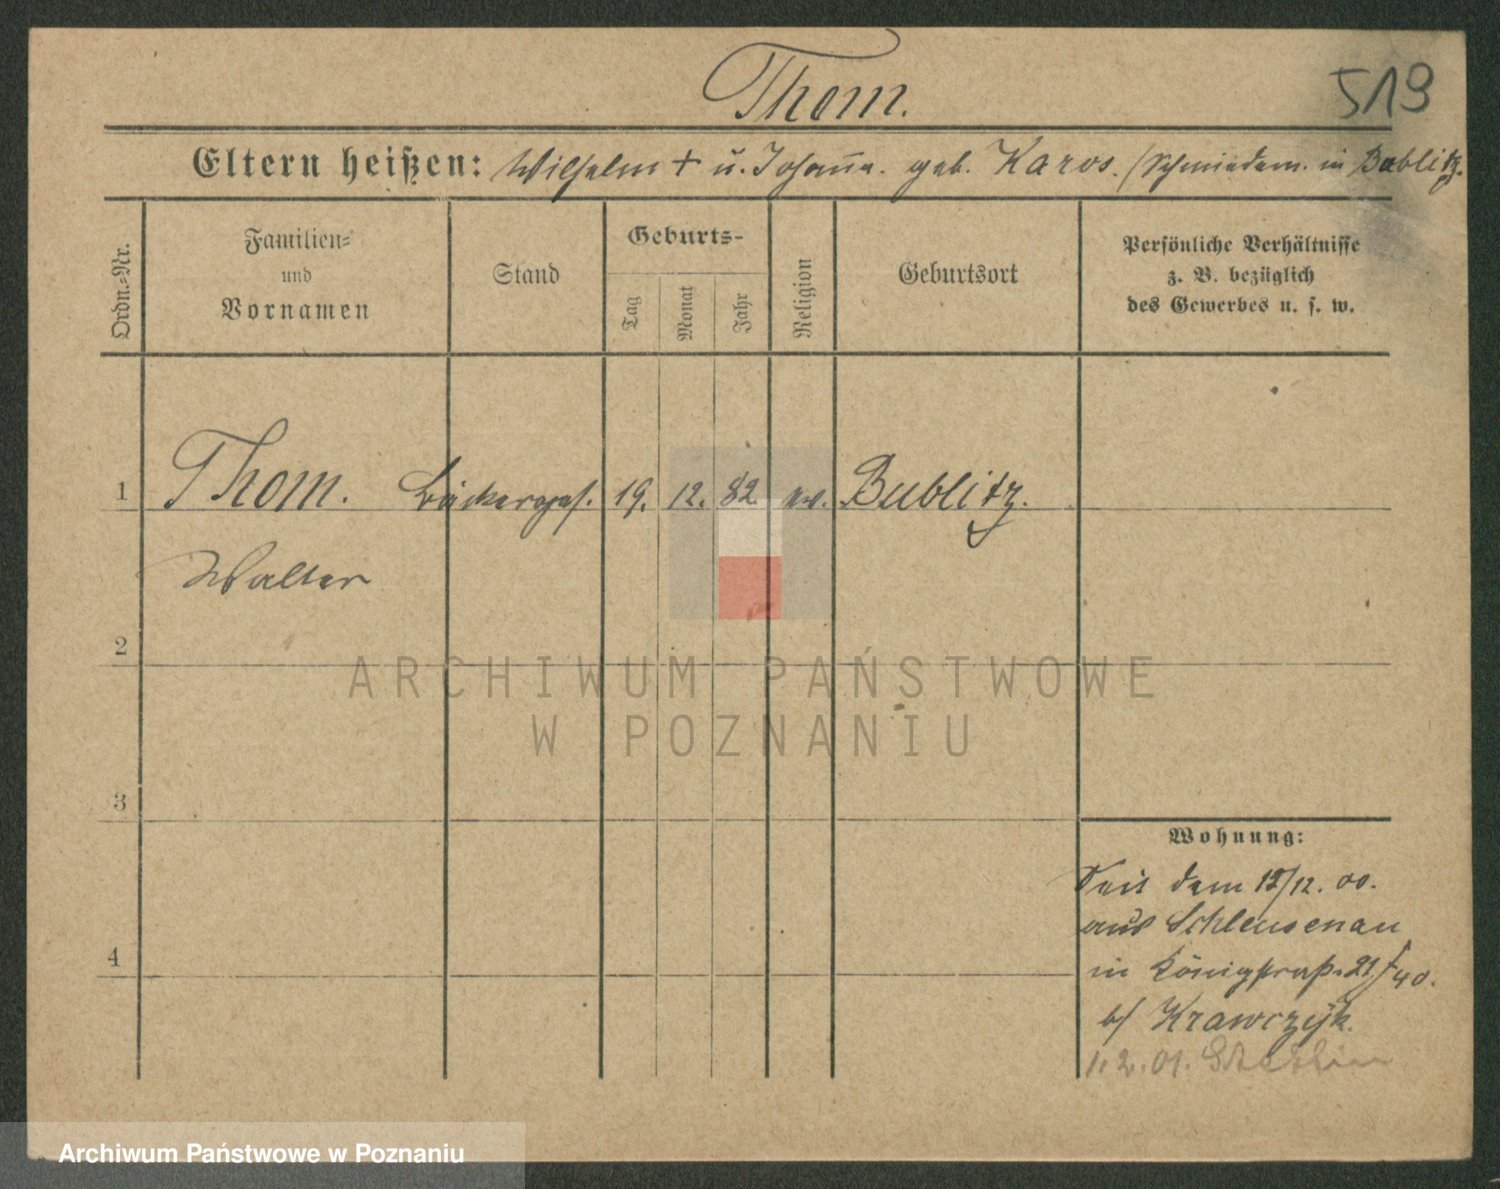 Thom.
519
Eltern heißen: Wilhelm + u. Johanna. geb. Karos. / Schmiedem. in Bublitz.
Ordn.-Nr.
Familien-
und
Vornamen
Stand
Geburts-
Tag
Monat
Jahr
Religion
Geburtsort
Persönliche Verhältnisse
z. B. bezüglich
des Gewerbes u. s. w.
1 Thom. Bäckerges. 19. 12. 82 ev. Bublitz.
Walter
2
ARCHIWUM PAŃSTWOWE
W POZNANIU
3
Wohnung:
Seit dem 15/12. 00.
aus Schleusenau
4
in Königstraß. 21/40.
b/ Krawczyk.
1. 2. 01. Stettin
Archiwum Państwowe w Poznaniu